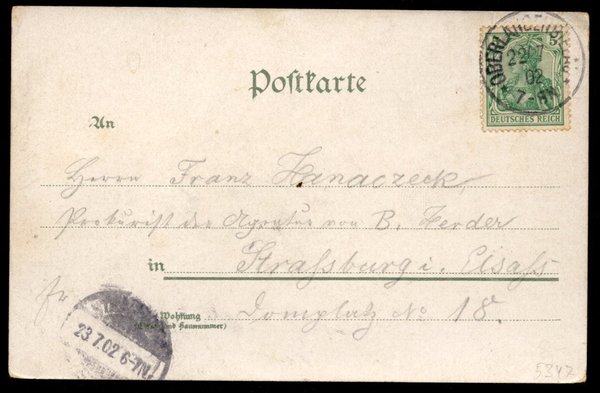 OBERLANGENBIELAU
22 7
02
7-8N
5
DEUTSCHES REICH
Postkarte
An
Herrn Franz Hanaczeck,
Prokurist der Agentur von B. Herder
in Strassburg i. Elsass
Domplatz No 18.
Wohnung
(Straße und Hausnummer)
23 7.02 6-7N
5342